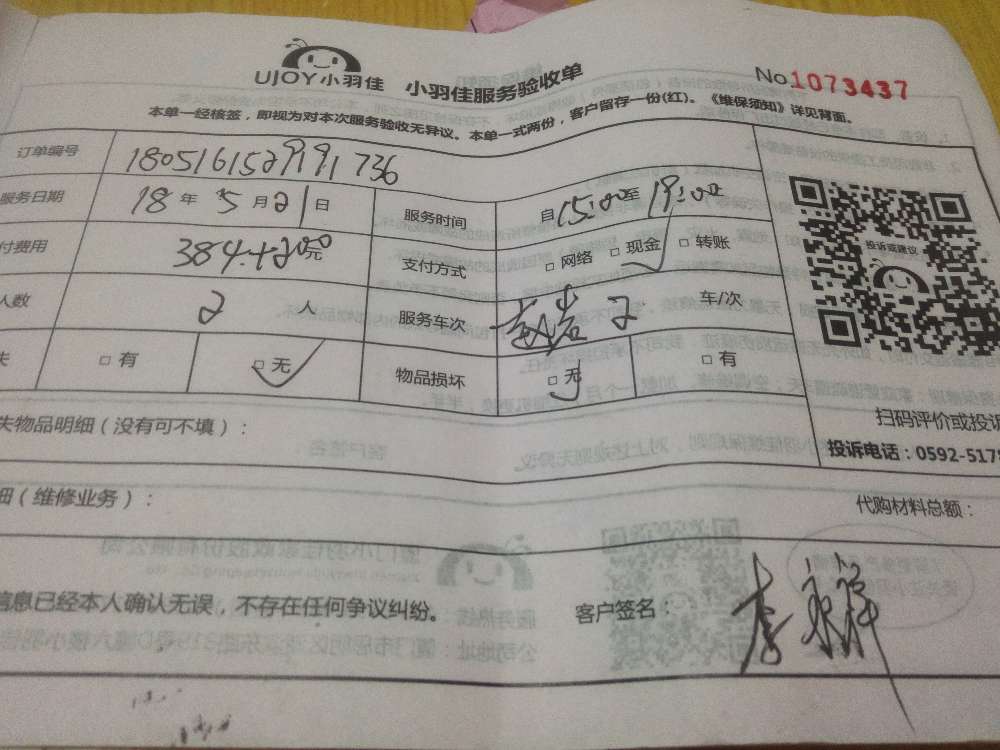 UJOY小羽佳 小羽佳服务验收单 No1073437
本单一经核签，即视为对本次服务验收无异议。本单一式两份，客户留存一份(红)。《维保须知》详见背面。
订单编号
服务日期 18 年 5 月 21 日 服务时间 自15:00至19:00
付费用 384+20元 支付方式 □ 网络 □ 现金 □ 转账
人数 2 人 服务车次 2 车/次
失 □ 有 □ 无 物品损坏 □ 无 □ 有
投诉或建议
扫码评价或投诉
投诉电话：0592-5178
失物品明细（没有可不填）：
细（维修业务）： 代购材料总额：
信息已经本人确认无误，不存在任何争议纠纷。 客户签名：